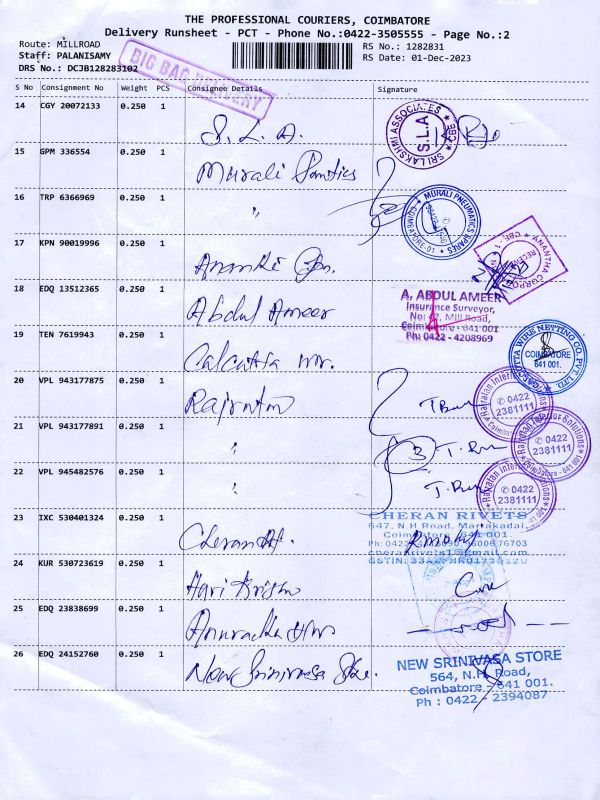 THE PROFESSIONAL COURIERS, COIMBATORE
Delivery Runsheet - PCT - Phone No.:0422-3505555 - Page No.:2
Route: MILLROAD
RS No.: 1282831
Staff: PALANISAMY
RS Date: 01-Dec-2023
DRS No.: DCJB128283102
BIG BAG DELIVERY
S No Consignment No Weight PCS Consignee Details Signature
14 CGY 20072133 0.250 1
S. L. A.
SRI LAKSHMI ASSOCIATES
S.L.A
CBE
15 GPM 336554 0.250 1
Murali
16 TRP 6366969 0.250 1
"
MURALI PNEUMATIC SPARES
COIMBATORE-01
17 KPN 90019996 0.250 1
ANANTHA CORPO
RECEIVED
CBE. 1
18 EDQ 13512365 0.250 1
Abdul Ameer
A. ABDUL AMEER
Insurance Surveyor,
Mill Road,
Coimbatore - 641 001
Ph: 0422 - 4208969
19 TEN 7619943 0.250 1
Calcutta
CALCUTTA WIRE NETTING CO. PVT. LTD.
COIMBATORE
641 001.
20 VPL 943177875 0.250 1
Rajratan
Rajratan Interior Solutions
✆ 0422
2381111
Coimbatore - 641 001
21 VPL 943177891 0.250 1
"
3
✆ 0422
2381111
22 VPL 945482576 0.250 1
"
✆ 0422
2381111
23 IXC 530401324 0.250 1
Cheran
CHERAN RIVETS
647, N.H Road, Marakadai,
Coimbatore - 641 001.
24 KUR 530723619 0.250 1
Hari Krishna
25 EDQ 23838699 0.250 1
Anuradha
26 EDQ 24152760 0.250 1
New Srinivasa Store.
NEW SRINIVASA STORE
564, N.H. Road,
Coimbatore - 641 001.
Ph : 0422 - 2394087